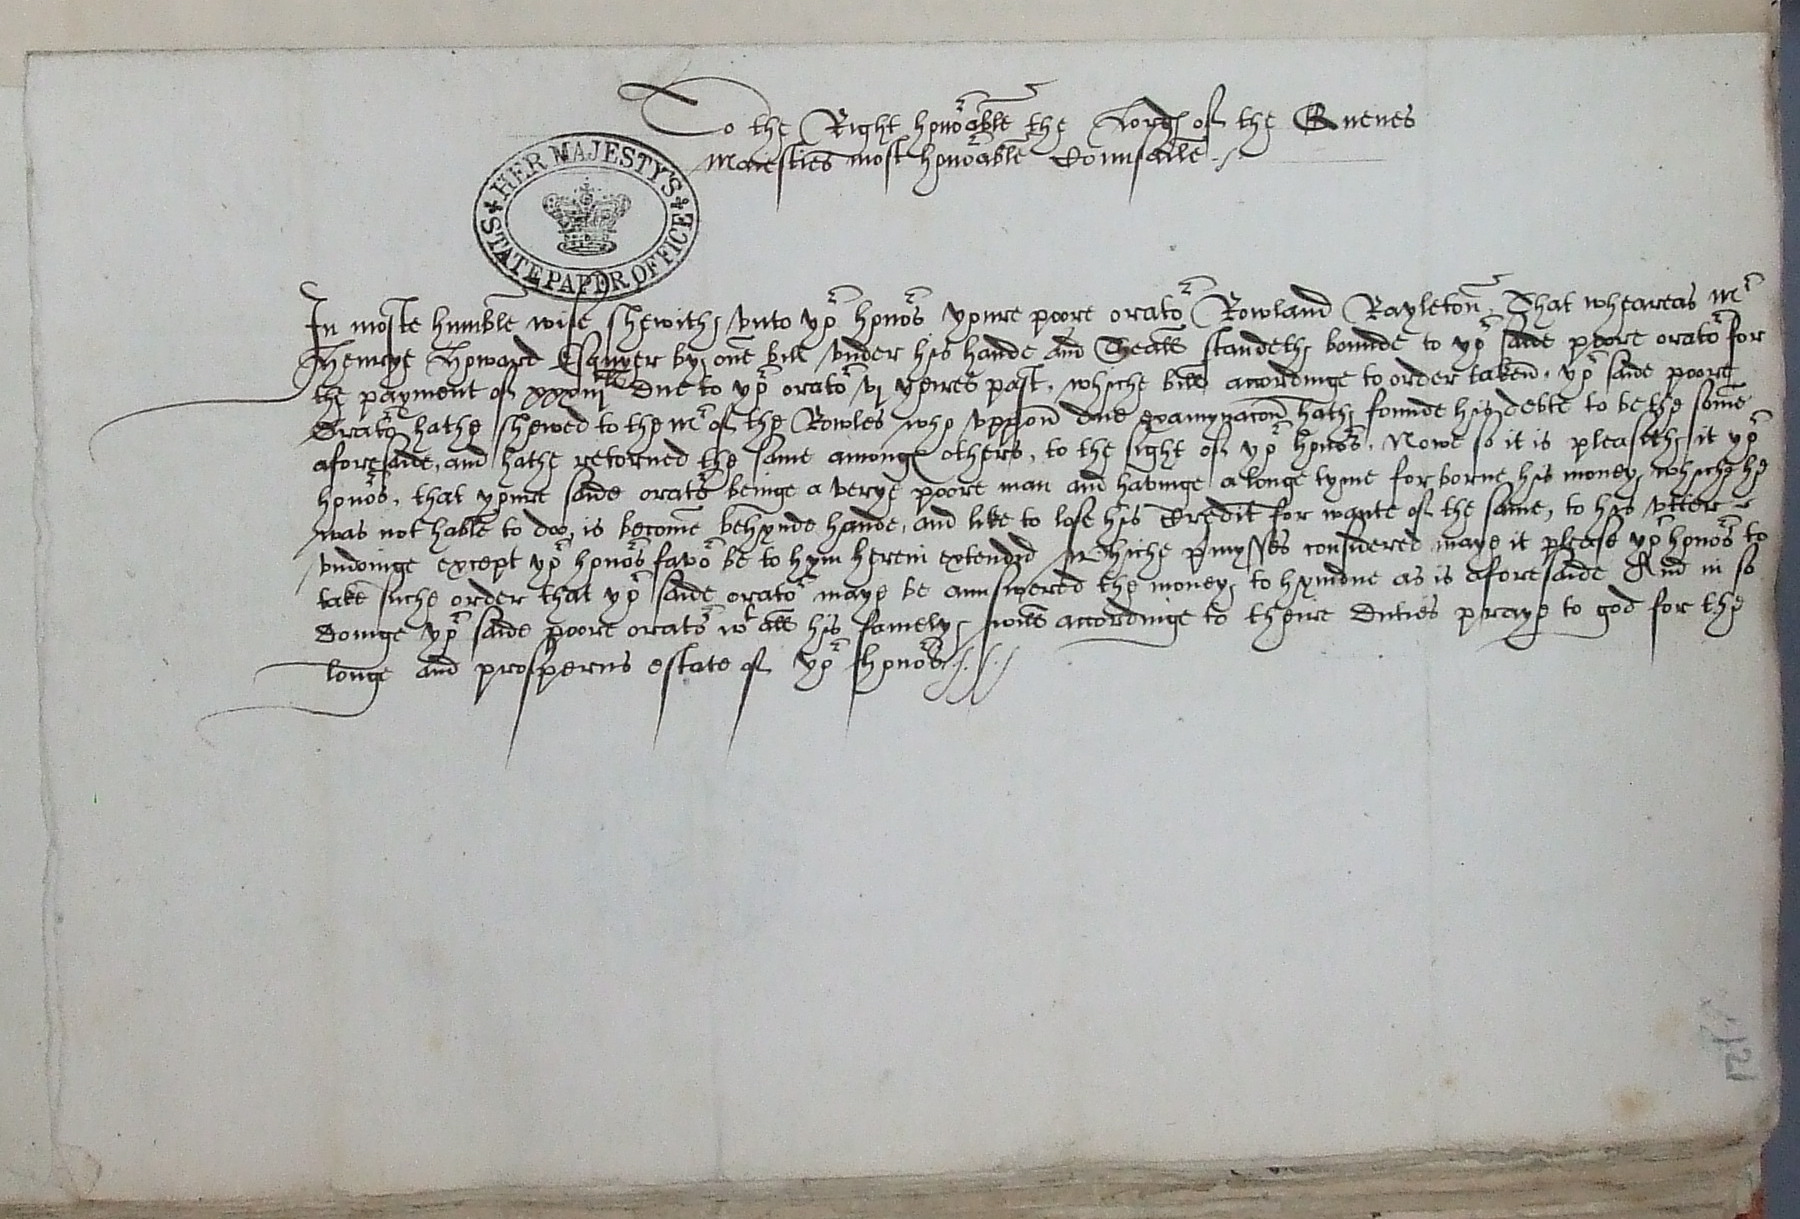 To the Right honorable the Lordes of the Quenes
Maiesties most honorable Counsaile
HER MAJESTY'S
STATE PAPER OFFICE
In moste humble wise shewith vnto yor honors youre poore orator Rowland Rayleton. That wheareas Mr
Henrye Howard Esquyer by one bill vnder his hande and Seale standeth bounde to yor saide poore orator for
the payment of xxxiijli due to yor orator vj yeares past, whiche bill accordinge to order taken, yor saide poore
Orator hathe shewed to the Mr of the Rowles who vppon due examynacon hath founde his debte to be the some
aforesaide, and hathe retorned the same amonge others, to the sight of yor honors. Nowe so it is pleaseth it yor
honors, that youre saide orator beinge a verye poore man and havinge a longe tyme forborne his money, whiche he
was not hable to doo, is become behynde hande, and like to lose his Credit for wante of the same, to his vtter
vndoinge except yor honors favor be to hym herein extended Whiche pmysses considered maye it please yor honors to
take suche order that yor saide orator maye be aunswered the money, to hym due as is aforesaide And in so
doinge yor saide poore orator wt all his famely, will accordinge to theire duties praye to god for the
longe and prosperus estate of yor honors
121